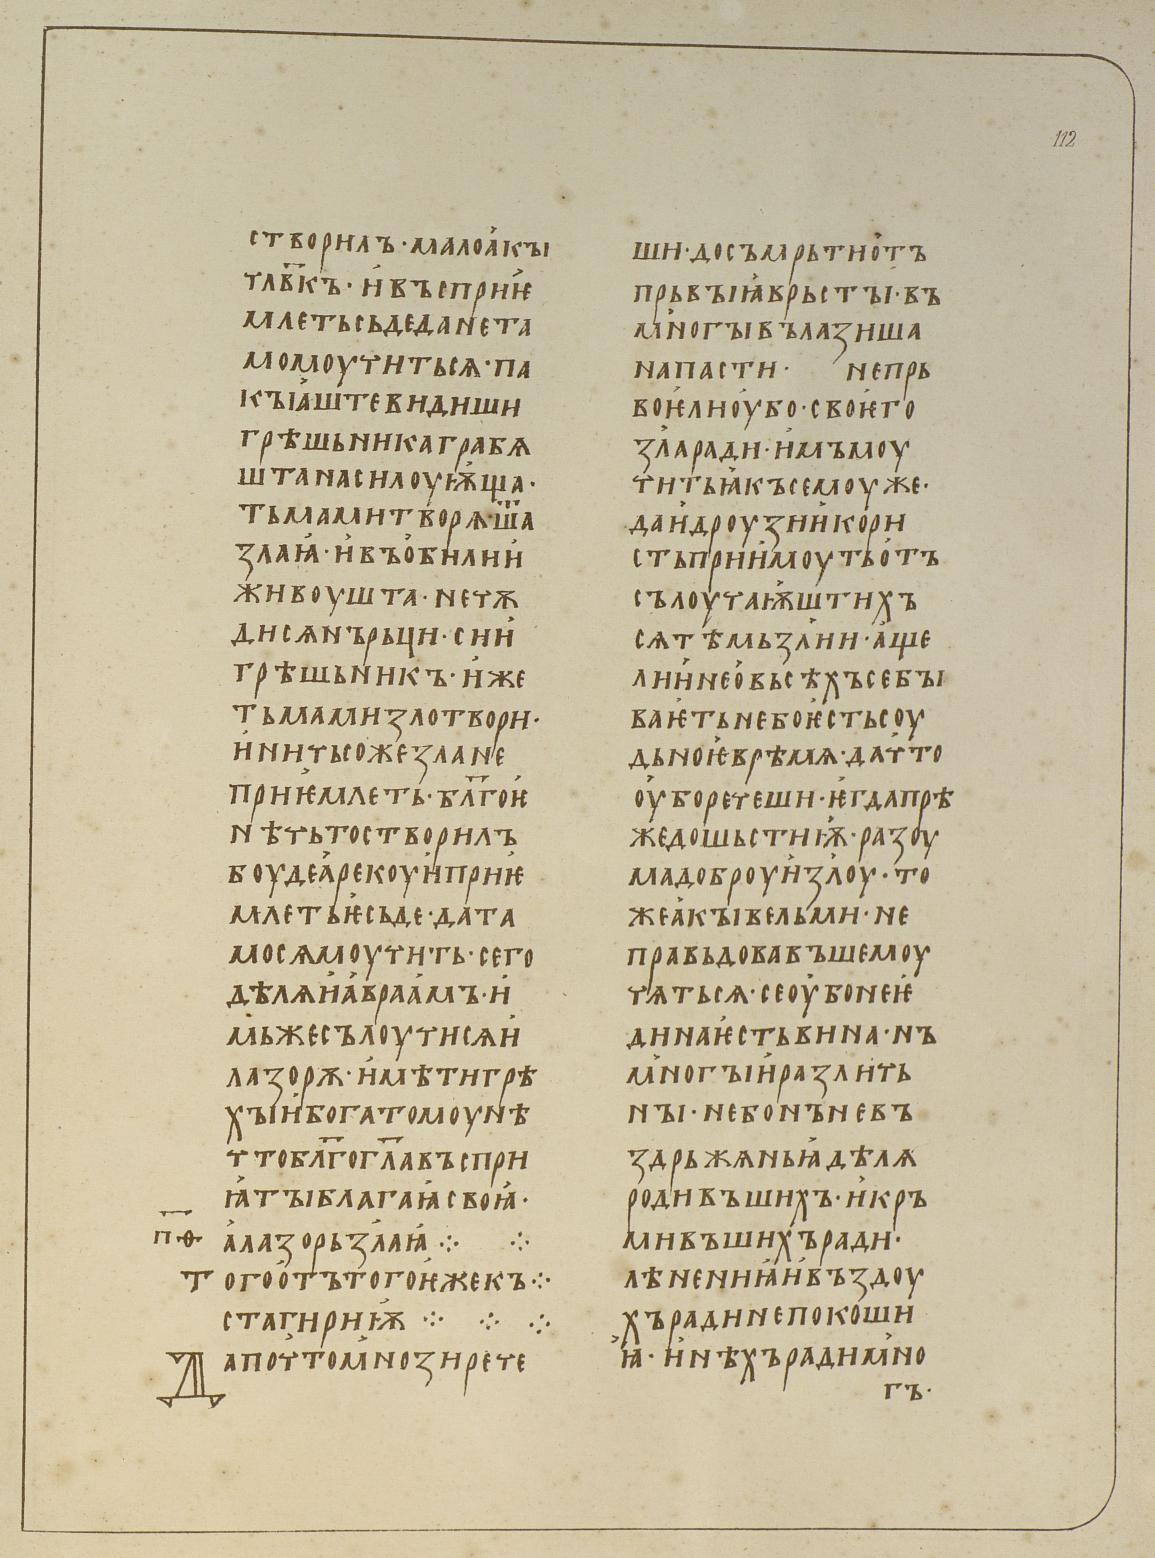 112
створилъ·малоа҆кꙑ
чл҃вкъ·и҆въспри𙵥
млетьсьдеданета
момоучитьсѧ·па
кꙑꙗ҆штевидиши
грѣшьникаграбѧ
штанасилоуѭ҆ща·
тьмамитворѧ·шта
злаꙗ҆·и҆въо҆билии҆
живоушта·нечѫ
дисѧнърьци·сии҆
грѣшьникъ·и҆же
тьмамизлотвори·
и҆ничьсожезлане
приѥ҆млеть·бл҃гоѥ҆
нѣчьтостворилъ
боудеа҆рекоуи҆приѥ҆
млетьѥ҆сьде·дата
мосѧмоучить·сего
дѣлѧи҆а҆враа҆мъ·и҆
мьжесълоучисѧи҆
лазорѫ·и҆мѣтигрѣ
хꙑи҆богатомоунѣ
чтобл҃гогл҃авъспри
ꙗ҆тꙑблагаꙗ҆своꙗ҆·
п҃ѳ а҆лазорьзлаꙗ҆ ⁘ ⁘
Того҆отътогоѥ҆жекъ⁘
стагириѭ҆ ⁘ ⁘ ⁘
Дапочтомнозирече
ши·досъмрьтио҆тъ
прьвꙑꙗ҆врьстꙑ·въ
многꙑвълазиша
напасти· непрь
воѥ҆лиоу҆бо·своѥ҆го
зларади·и҆мъмоу
читьꙗ҆късемоуже·
даи҆дроузии҆кори
стьприи҆моутьо҆тъ
сълоучаѭ҆штихъ
сѧтѣмьзлии·а҆ще
лии҆нео҆вьсѣхъсебꙑ
ваѥ҆тьнебоѥ҆стьсоу
дьноѥ҆врѣмѧ·дачто
оу҆боречеши·ѥ҆гдапрѣ
жедошьстиѭ҆·разоу
мадоброуи҆злоу·то
жеа҆кꙑвельми·не
правьдовавъшемоу
чѧтьсѧ·сеоу҆бонеѥ҆
динаѥ҆стьвина·нъ
многꙑи҆различь
нꙑ·небонъневъ
здрьжѧньꙗ҆дѣлѧ
родивъшихъ·и҆кръ
мивъшихъради·
лѣнениꙗ҆и҆въздоу
хърадинепокоши
ꙗ҆·и҆нѣхърадимно
гъ·